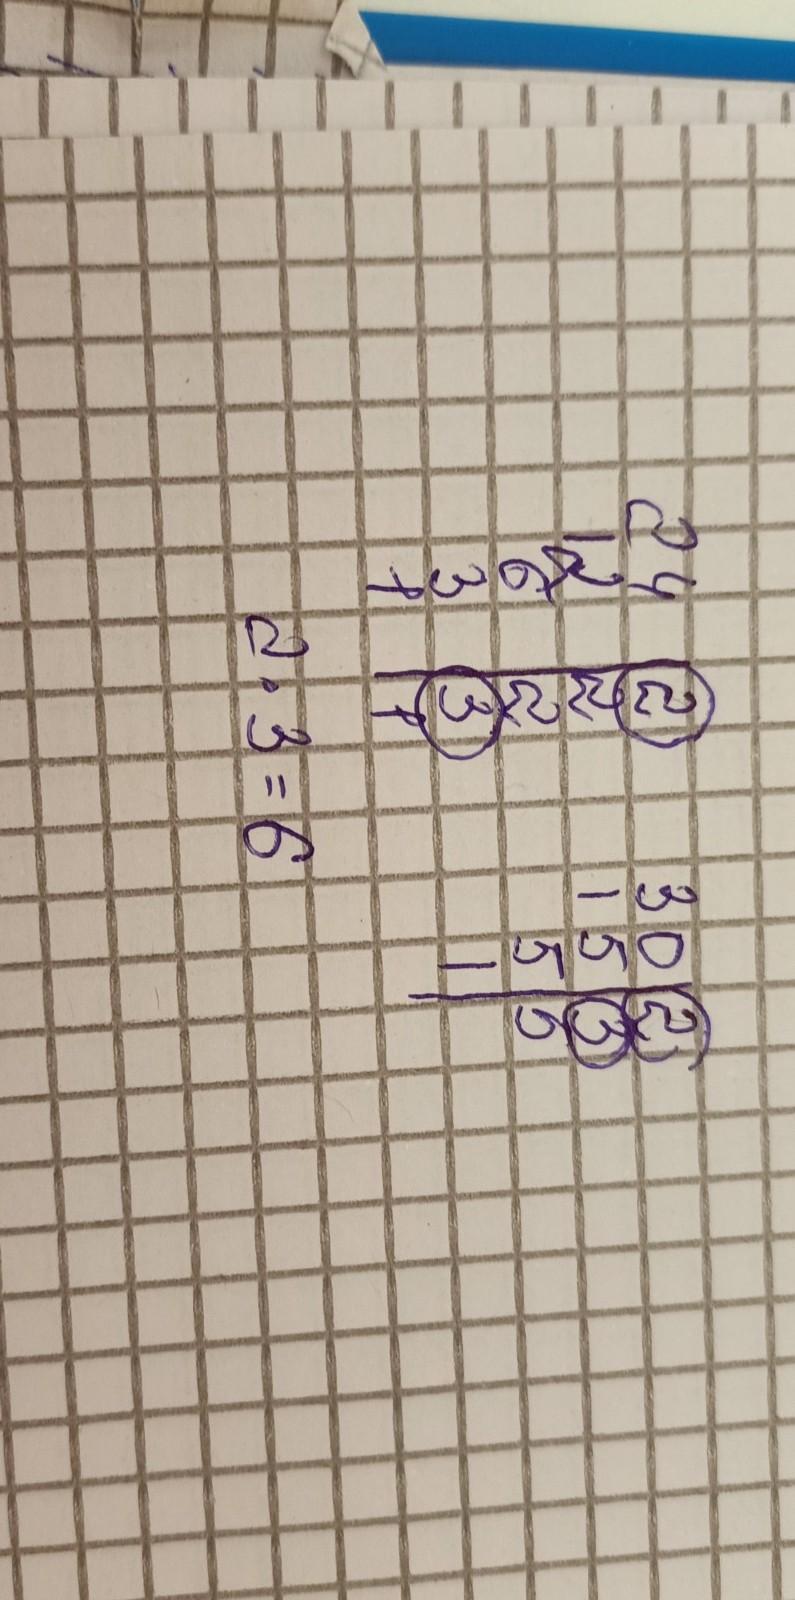 24 | 2 30 | 2
12 | 2 15 | 3
6 | 2 5 | 5
3 | 3 1 |
1 | 1
2 · 3 = 6